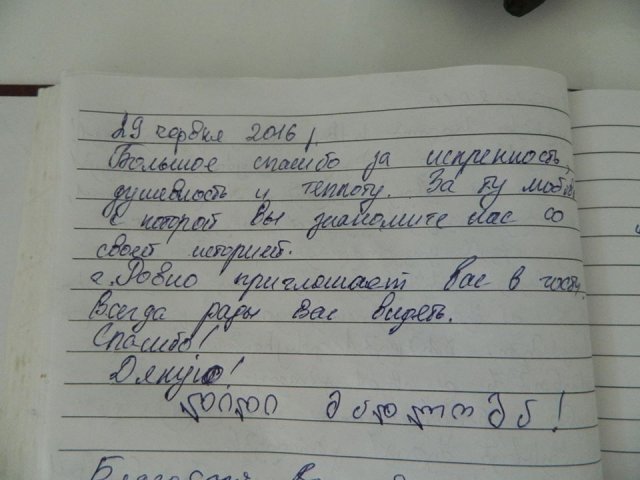 29 червня 2016 р.
Большое спасибо за искренность,
душевность и теплоту. За ту любовь
с которой Вы знакомите нас со
своей историей.
г. Ровно приглашает Вас в гости.
Всегда рады Вас видеть.
Спасибо!
Дякую!
დიდი
Благодарим